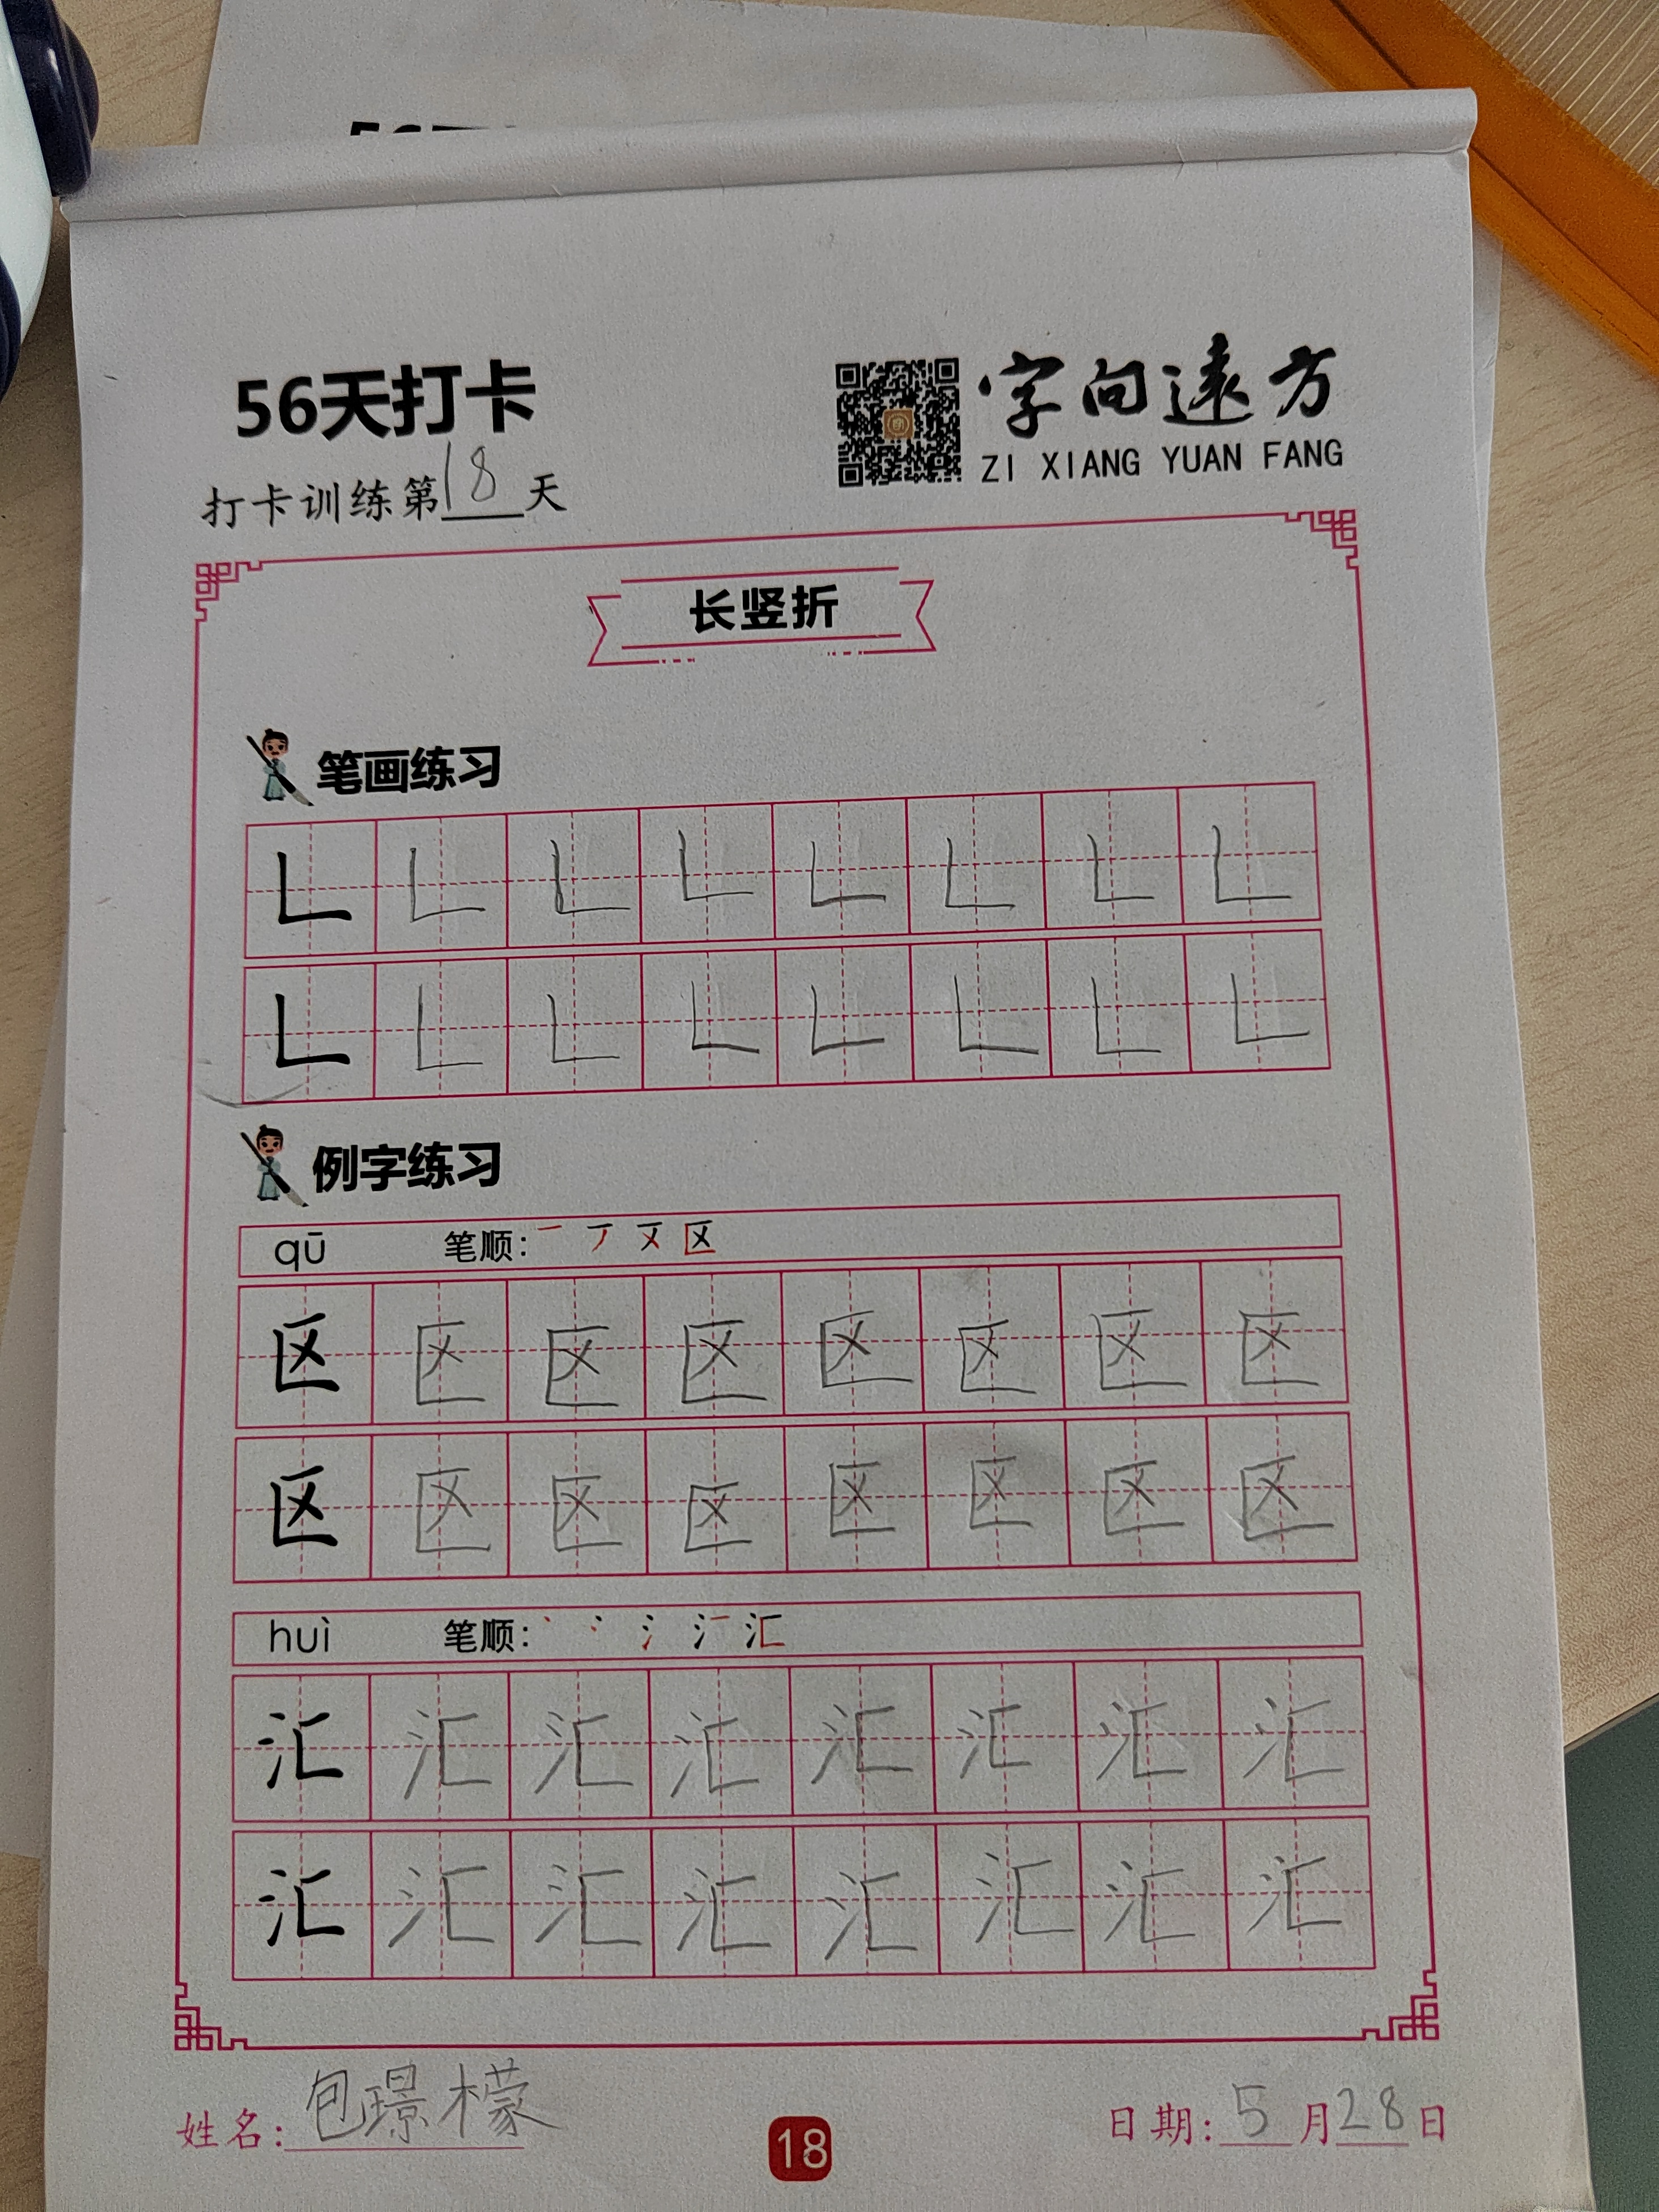 56天打卡
字向遠方
ZI XIANG YUAN FANG
打卡训练第18天
长竖折
笔画练习
例字练习
qū 笔顺: 区
区 区 区 区 区 区 区 区
区 区 区 区 区 区 区 区
huì 笔顺: 丶 冫 氵 汇
汇 汇 汇 汇 汇 汇 汇 汇
汇 汇 汇 汇 汇 汇 汇 汇
姓名: 包璟檬
日期: 5月28日
18